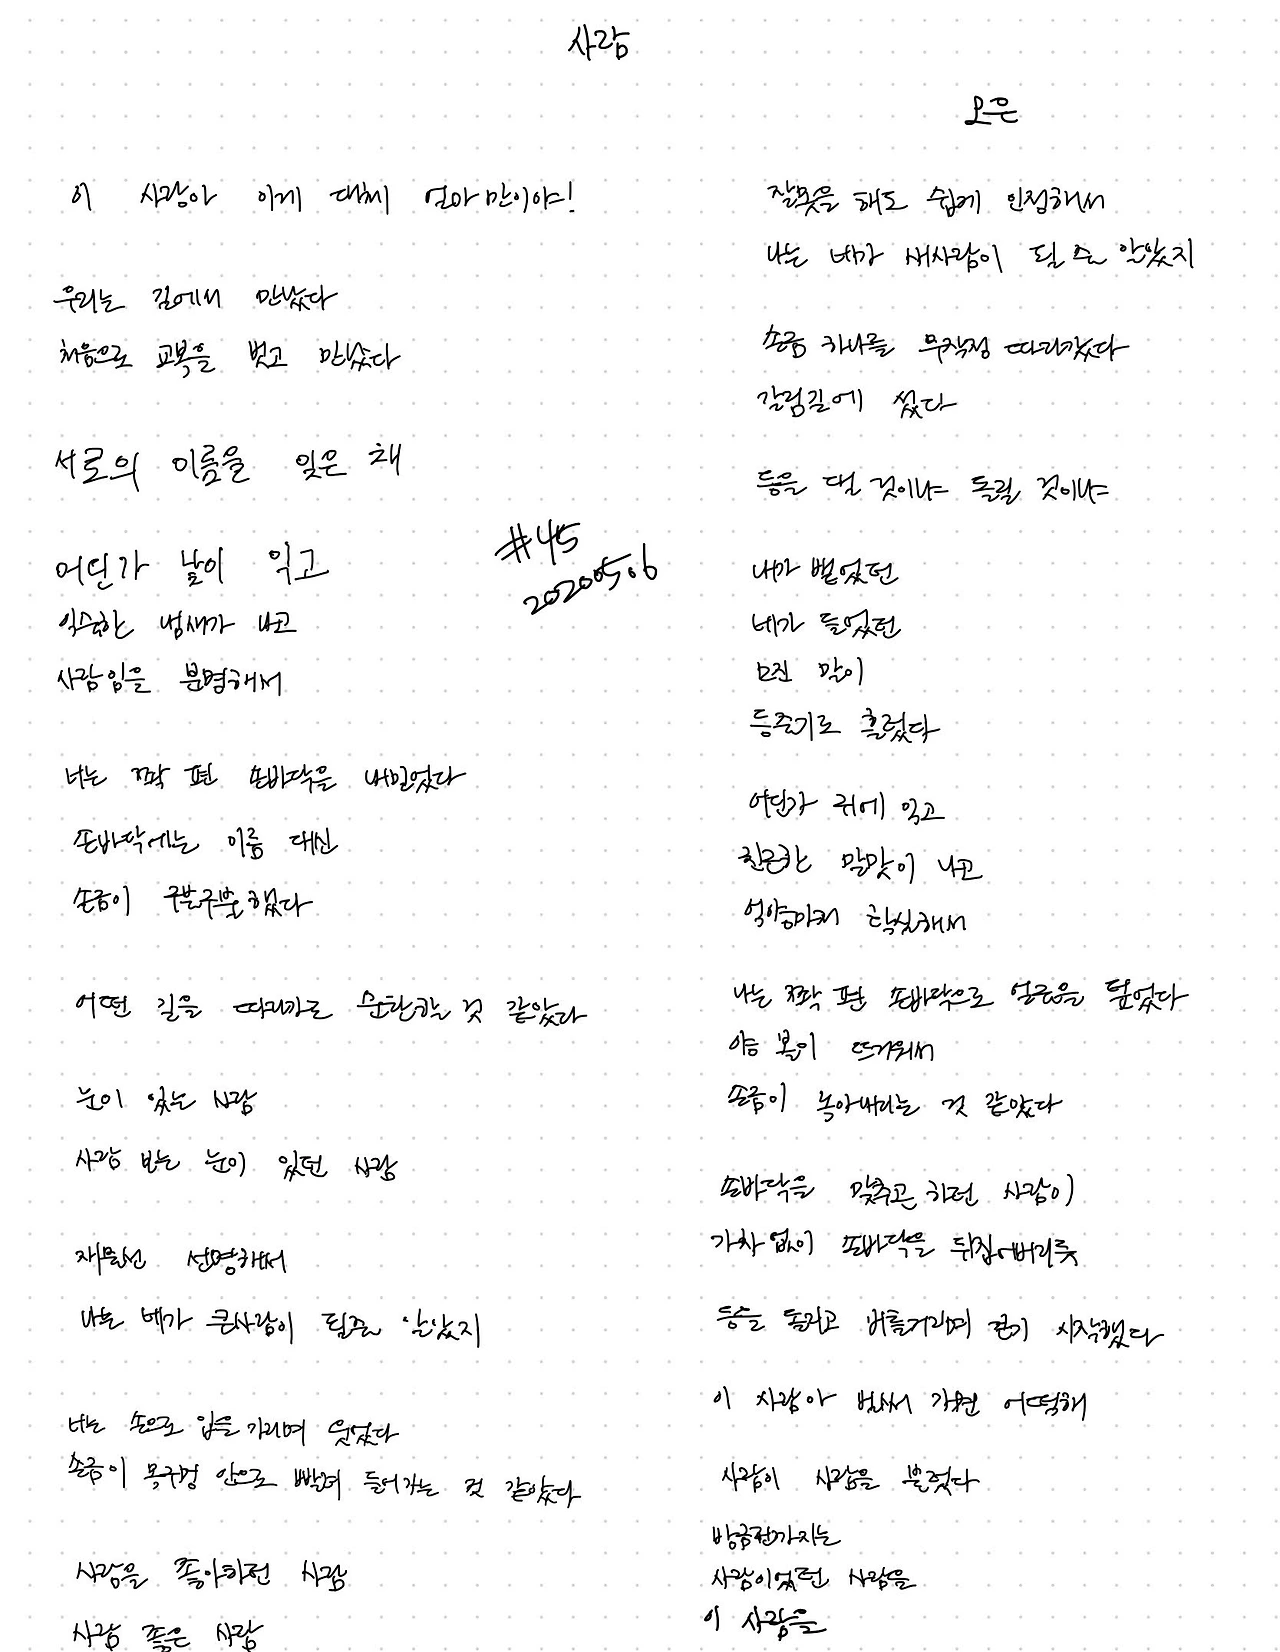 사람
오은
이 사람아 이게 대체 얼마만이야!
우리는 길에서 만났다
처음으로 교복을 벗고 만났다
서로의 이름을 잊은 채
어딘가 낯이 익고
익숙한 냄새가 나고
사람임을 분명해서
너는 쫙 편 손바닥을 내밀었다
손바닥에는 이름 대신
손금이 구불구불했다
어떤 길을 따라가도 순탄할 것 같았다
눈이 있는 사람
사람 보는 눈이 있던 사람
재물선 선명해서
나는 네가 큰사람이 될줄 알았지
너는 손으로 입을 가리며 웃었다
손금이 목구멍 안으로 빨려 들어가는 것 같았다
사람을 좋아하던 사람
사람 좋은 사람
#45
20200506
잘못을 해도 쉽게 인정해서
나는 네가 새사람이 될 줄 알았지
손금 하나를 무작정 따라갔다
갈림길에 섰다
등을 댈 것이냐 돌릴 것이냐
내가 뱉었던
네가 들었던
모진 말이
등줄기로 흘렀다
어딘가 귀에 익고
친근한 말맛이 나고
억양마저 확실해서
나는 쫙 편 손바닥으로 얼굴을 덮었다
양 볼이 뜨거워서
손금이 녹아내리는 것 같았다
손바닥을 맞추곤 하던 사람이
가차 없이 손바닥을 뒤집어버리듯
등을 돌리고 비틀거리며 걷기 시작했다
이 사람아 벌써 가면 어떡해
사람이 사람을 불렀다
방금전까지는
사람이었던 사람을
이 사람을